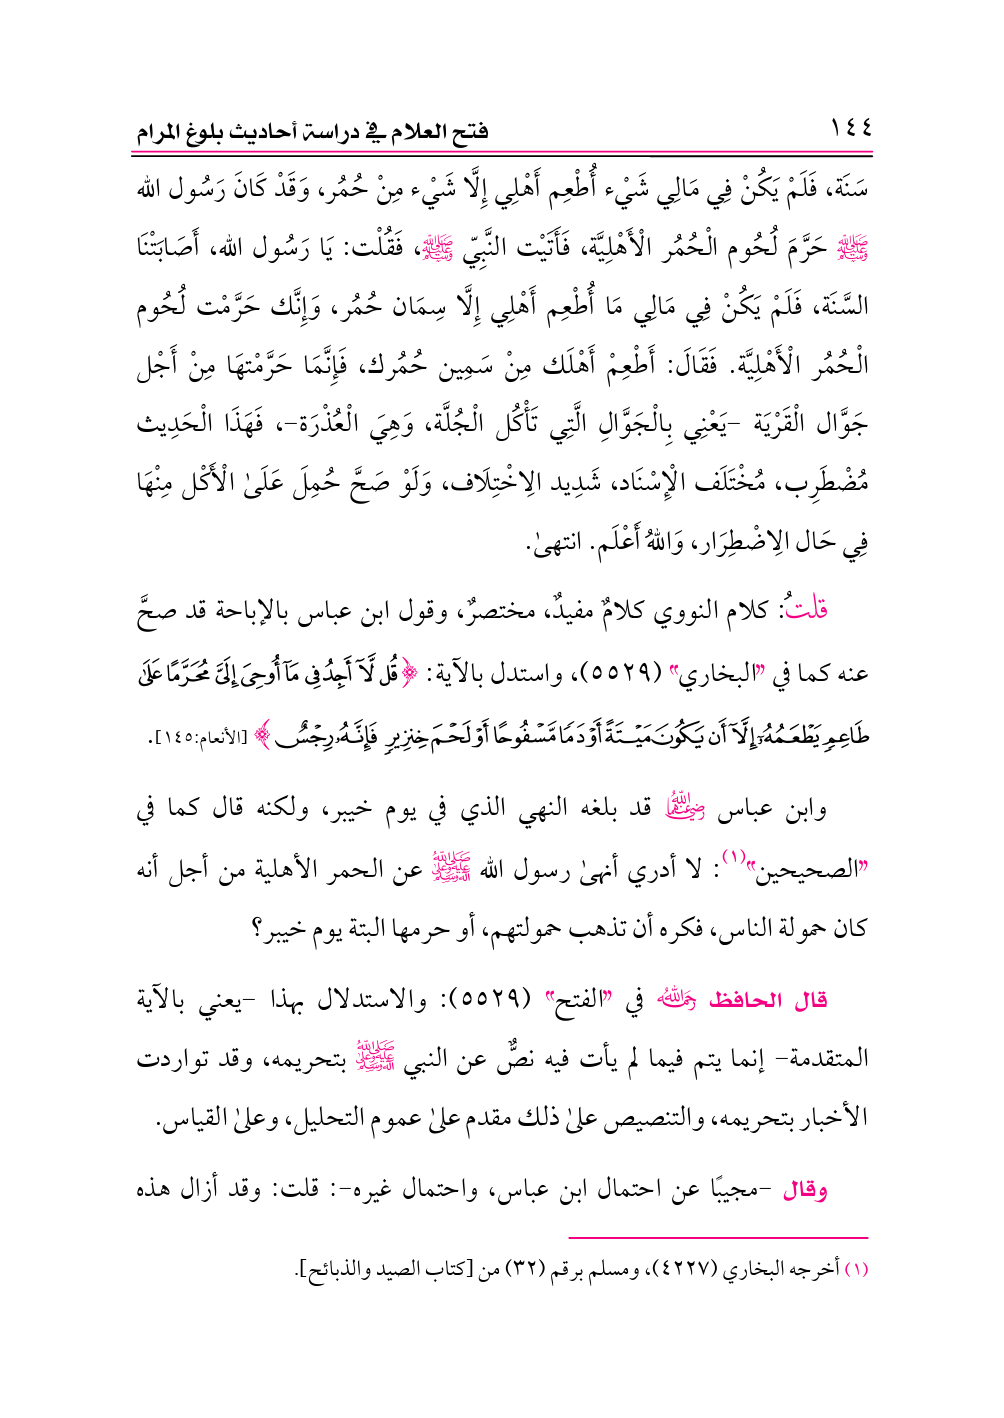 ١٤٤ فتح العلام في دراسة أحاديث بلوغ المرام
سَنَة، فَلَمْ يَكُنْ فِي مَالِي شَيْء أُطْعِم أَهْلِي إِلَّا شَيْء مِنْ حُمُر، وَقَدْ كَانَ رَسُول الله
ﷺ حَرَّمَ لُحُوم الْحُمُر الْأَهْلِيَّة، فَأَتَيْت النَّبِيّ ﷺ، فَقُلْت: يَا رَسُول الله، أَصَابَتْنَا
السَّنَة، فَلَمْ يَكُنْ فِي مَالِي مَا أُطْعِم أَهْلِي إِلَّا سِمَان حُمُر، وَإِنَّك حَرَّمْت لُحُوم
الْحُمُر الْأَهْلِيَّة. فَقَالَ: أَطْعِمْ أَهْلَك مِنْ سَمِين حُمُرك، فَإِنَّمَا حَرَّمْتهَا مِنْ أَجْل
جَوَّال الْقَرْيَة -يَعْنِي بِالْجَوَّالِ الَّتِي تَأْكُل الْجُلَّة، وَهِيَ الْعُذْرَة-، فَهَذَا الْحَدِيث
مُضْطَرِب، مُخْتَلَف الْإِسْنَاد، شَدِيد الِاخْتِلَاف، وَلَوْ صَحَّ حُمِلَ عَلَىٰ الْأَكْل مِنْهَا
فِي حَال الِاضْطِرَار، وَاللهُ أَعْلَم. انتهىٰ.
قلتُ: كلام النووي كلامٌ مفيدٌ، مختصرٌ، وقول ابن عباس بالإباحة قد صحَّ
عنه كما في "البخاري" (٥٥٢٩)، واستدل بالآية: ﴿قُل لَّآ أَجِدُ فِي مَآ أُوحِيَ إِلَيَّ مُحَرَّمًا عَلَىٰ
طَاعِمٍ يَطْعَمُهُۥٓ إِلَّآ أَن يَكُونَ مَيْتَةً أَوْ دَمًا مَّسْفُوحًا أَوْ لَحْمَ خِنزِيرٍ فَإِنَّهُۥ رِجْسٌ﴾ [الأنعام:١٤٥].
وابن عباس رضي الله عنهما قد بلغه النهي الذي في يوم خيبر، ولكنه قال كما في
"الصحيحين"(١): لا أدري أنهىٰ رسول الله ﷺ عن الحمر الأهلية من أجل أنه
كان حمولة الناس، فكره أن تذهب حمولتهم، أو حرمها البتة يوم خيبر؟
قال الحافظ رحمه الله في "الفتح" (٥٥٢٩): والاستدلال بهذا -يعني بالآية
المتقدمة- إنما يتم فيما لم يأت فيه نصٌّ عن النبي ﷺ بتحريمه، وقد تواردت
الأخبار بتحريمه، والتنصيص علىٰ ذلك مقدم علىٰ عموم التحليل، وعلىٰ القياس.
وقال -مجيبًا عن احتمال ابن عباس، واحتمال غيره-: قلت: وقد أزال هذه
(١) أخرجه البخاري (٤٢٢٧)، ومسلم برقم (٣٢) من [كتاب الصيد والذبائح].